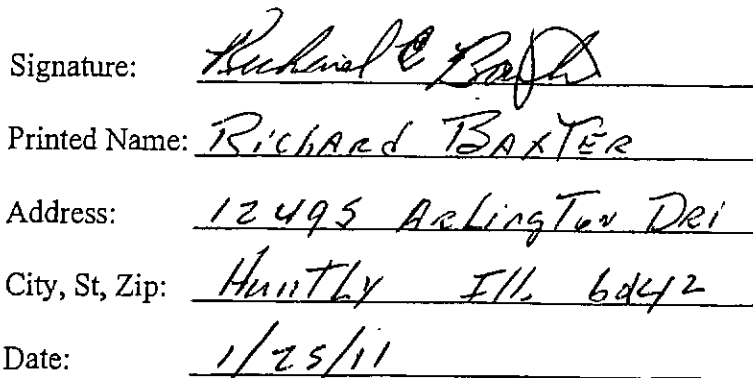 Signature: Richard C Baxter
Printed Name: Richard Baxter
Address: 12495 Arlington Dri
City, St, Zip: Huntly Ill.
Date: 1/25/11